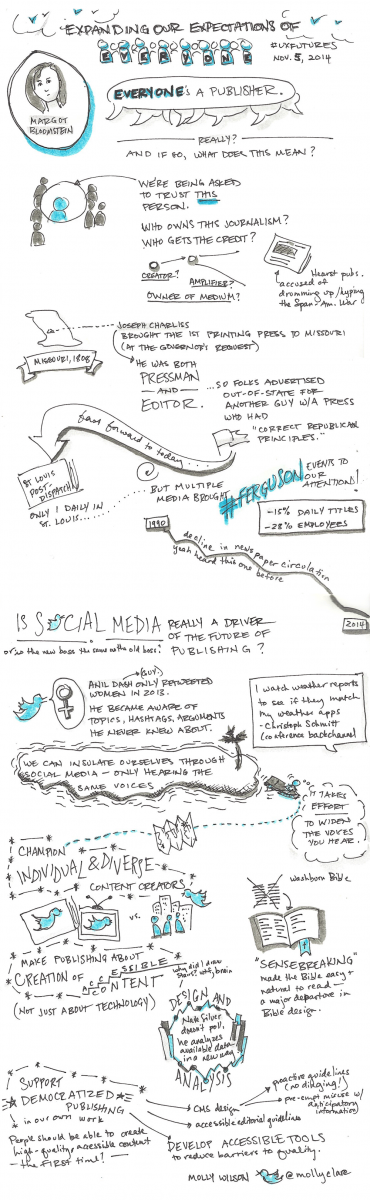 EXPANDING OUR EXPECTATIONS OF
EVERYONE
#UXFUTURES
NOV. 5, 2014
MARGOT
BLOOMSTEIN
EVERYONE'S A PUBLISHER.
REALLY?
AND IF SO, WHAT DOES THIS MEAN?
WE'RE BEING ASKED
TO TRUST THIS
PERSON.
WHO OWNS THIS JOURNALISM?
WHO GETS THE CREDIT?
CREATOR?
AMPLIFIER?
OWNER OF MEDIUM?
Hearst pubs.
accused of
drumming up/hyping
the Span-Am. War
MISSOURI, 1808
JOSEPH CHARLISS
BROUGHT THE 1ST PRINTING PRESS TO MISSOURI
(AT THE GOVERNOR'S REQUEST)
HE WAS BOTH
PRESSMAN
—AND—
EDITOR.
...SO FOLKS ADVERTISED
OUT-OF-STATE FOR
ANOTHER GUY W/A PRESS
WHO HAD
"CORRECT REPUBLICAN
PRINCIPLES."
fast forward to today...
ST LOUIS
POST-
DISPATCH
ONLY 1 DAILY IN
ST. LOUIS........
BUT MULTIPLE
MEDIA BROUGHT
#FERGUSON
EVENTS TO
OUR
ATTENTION!
-15% DAILY TITLES
-28% EMPLOYEES
1990
decline in newspaper circulation
yeah heard this one before
2014
IS SOCIAL MEDIA REALLY A DRIVER
OF THE FUTURE OF
PUBLISHING?
or is the new boss the same as the old boss?
ANIL DASH (GUY) ONLY RETWEETED
WOMEN IN 2013.
HE BECAME AWARE OF
TOPICS, HASHTAGS, ARGUMENTS
HE NEVER KNEW ABOUT.
I watch weather reports
to see if they match
my weather apps
- Christoph Schmitt
(conference backchannel)
WE CAN INSULATE OURSELVES THROUGH
SOCIAL MEDIA — ONLY HEARING THE
SAME VOICES
IT TAKES
EFFORT
TO WIDEN
THE VOICES
YOU HEAR.
CHAMPION
INDIVIDUAL & DIVERSE
CONTENT CREATORS
VS.
Washburn Bible
"SENSEBREAKING"
made the Bible easy +
natural to read —
a major departure in
Bible design.
MAKE PUBLISHING ABOUT
CREATION OF ACCESSIBLE
CONTENT
(NOT JUST ABOUT TECHNOLOGY)
why did I draw
stairs? wtf, brain
DESIGN AND
Nate Silver
doesn't poll,
he analyzes
available data
in a new way
ANALYSIS
SUPPORT
DEMOCRATIZED
PUBLISHING
in our own work
People should be able to create
high-quality, accessible content
— the FIRST time!
CMS design
proactive guidelines
(no dinging!)
pre-empt misuse w/
participatory
information)
accessible editorial guidelines
DEVELOP ACCESSIBLE TOOLS
to reduce barriers to quality.
MOLLY WILSON @mollyclare